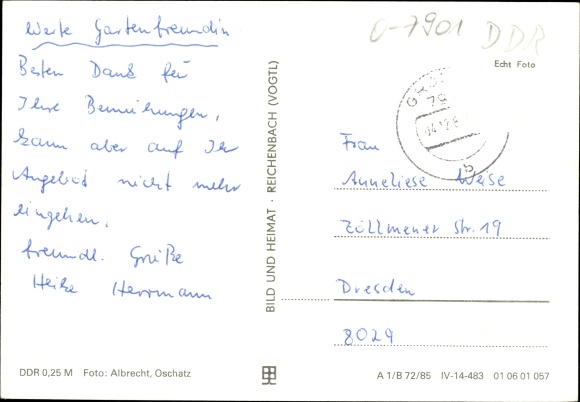 Werte Gartenfreundin
Besten Dank für
Ihre Bemühungen,
kann aber auf Ihr
Angebot nicht mehr
eingehen.
freundl. Grüße
Heike Herrmann
DDR 0,25 M Foto: Albrecht, Oschatz
BILD UND HEIMAT · REICHENBACH (VOGTL)
0-7901 DDR
Echt Foto
Frau
Anneliese Weise
Zöllmener Str. 19
Dresden
8029
A 1/B 72/85 IV-14-483 01 06 01 057